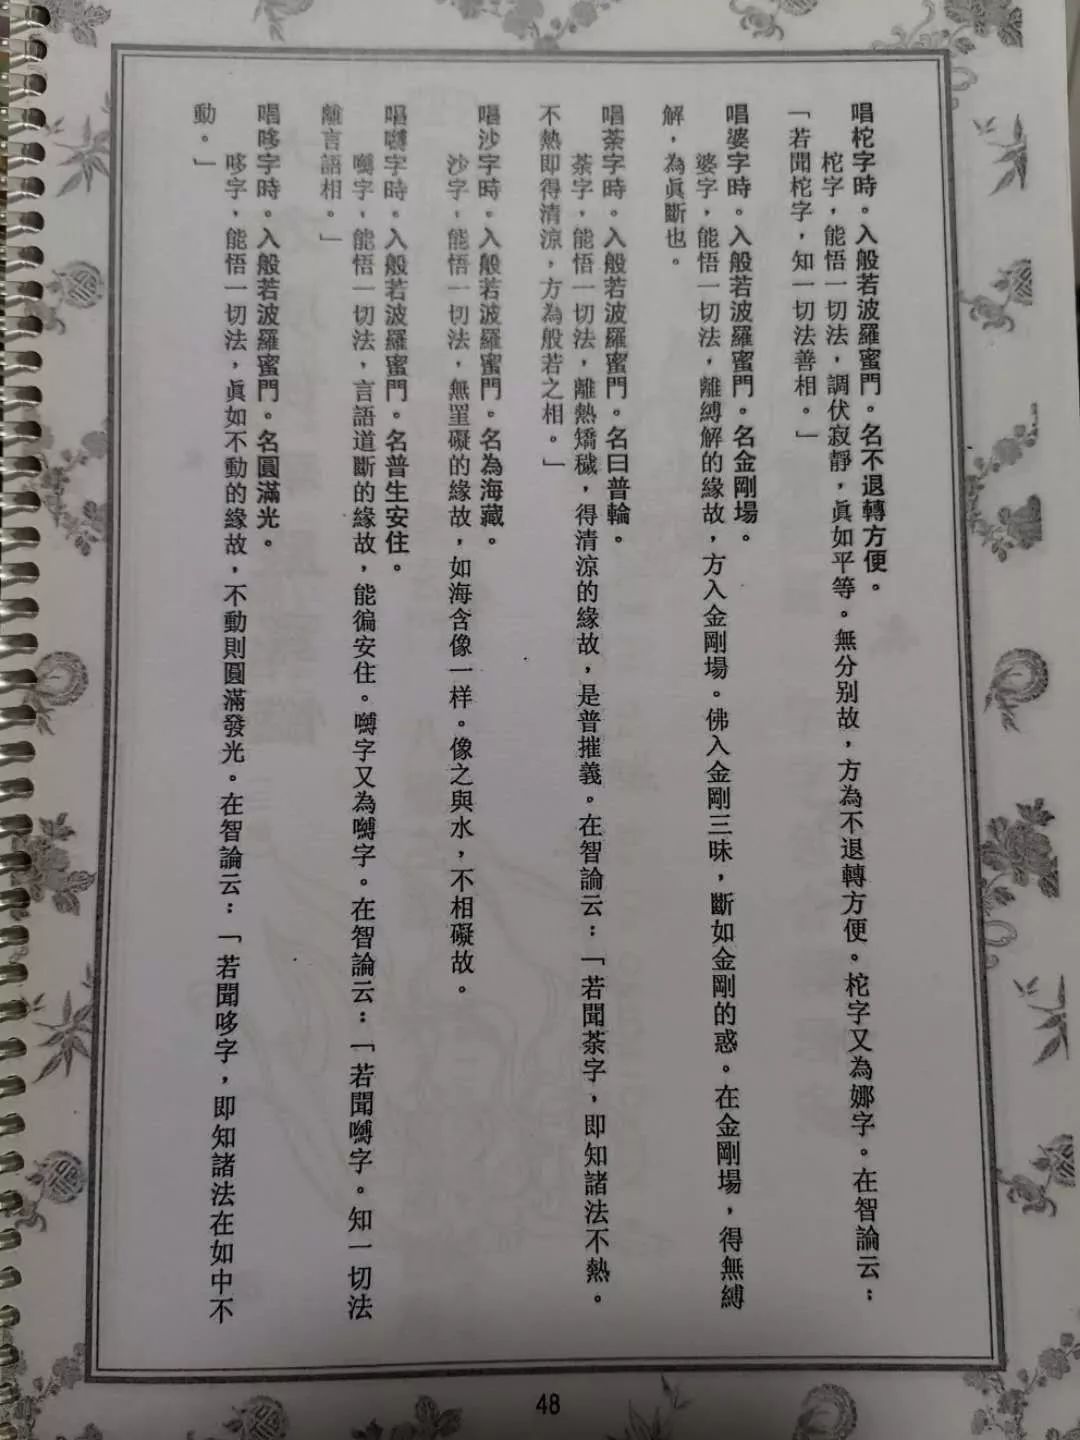 唱柁字時。入般若波羅蜜門。名不退轉方便。
柁字，能悟一切法，調伏寂靜，眞如平等。無分别故，方為不退轉方便。柁字又為娜字。在智論云：
「若聞柁字，知一切法善相。」
唱婆字時。入般若波羅蜜門。名金剛場。
婆字，能悟一切法，離縛解的緣故，方入金剛場。佛入金剛三昧，斷如金剛的惑。在金剛場，得無縛
解，為眞斷也。
唱荼字時。入般若波羅蜜門。名曰普輪。
荼字，能悟一切法，離熱矯穢，得清涼的緣故，是普摧義。在智論云：「若聞荼字，即知諸法不熱。
不熱即得清涼，方為般若之相。」
唱沙字時。入般若波羅蜜門。名為海藏。
沙字，能悟一切法，無罣礙的緣故，如海含像一样。像之與水，不相礙故。
唱嚩字時。入般若波羅蜜門。名普生安住。
嚩字，能悟一切法，言語道斷的緣故，能徧安住。嚩字又為嚩字。在智論云：「若聞嚩字。知一切法
離言語相。」
唱哆字時。入般若波羅蜜門。名圓滿光。
哆字，能悟一切法，眞如不動的緣故，不動則圓滿發光。在智論云：「若聞哆字，即知諸法在如中不
動。」
48